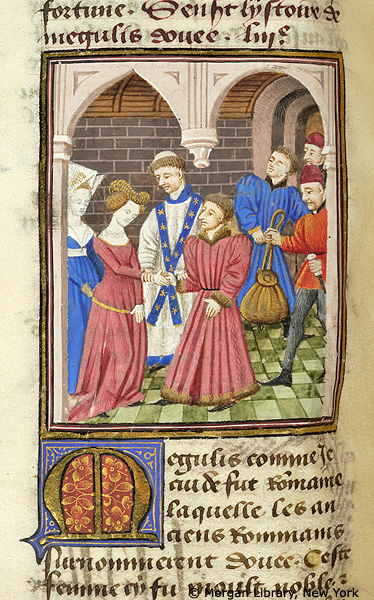 fortune. Sensuit lystoire de
megulis douee. liiie.
Megulis comme Je
cuide fut Rommaine
laquelle les an
ciens Rommains
surnommerent douee. Ceste
femme cy fu moult noble
© Morgan Library, New York